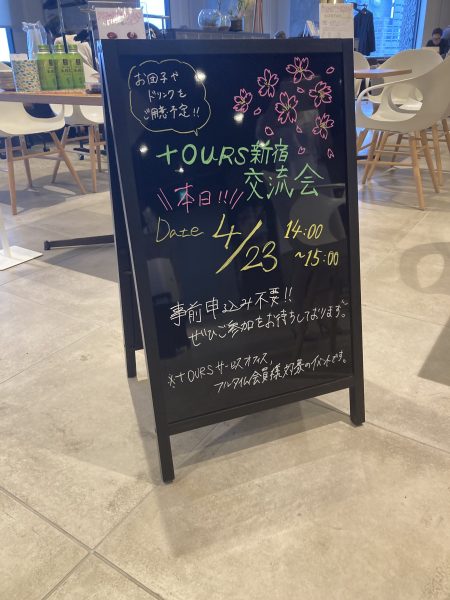 お団子や
ドリンクを
ご用意予定!!
+OURS新宿
交流会
\\本日!!/
Date 4/23 14:00
~15:00
事前申込み不要!!
ぜひご参加をお待ちしております。
※+OURSサービスオフィス,
フルタイム会員様対象のイベントです。